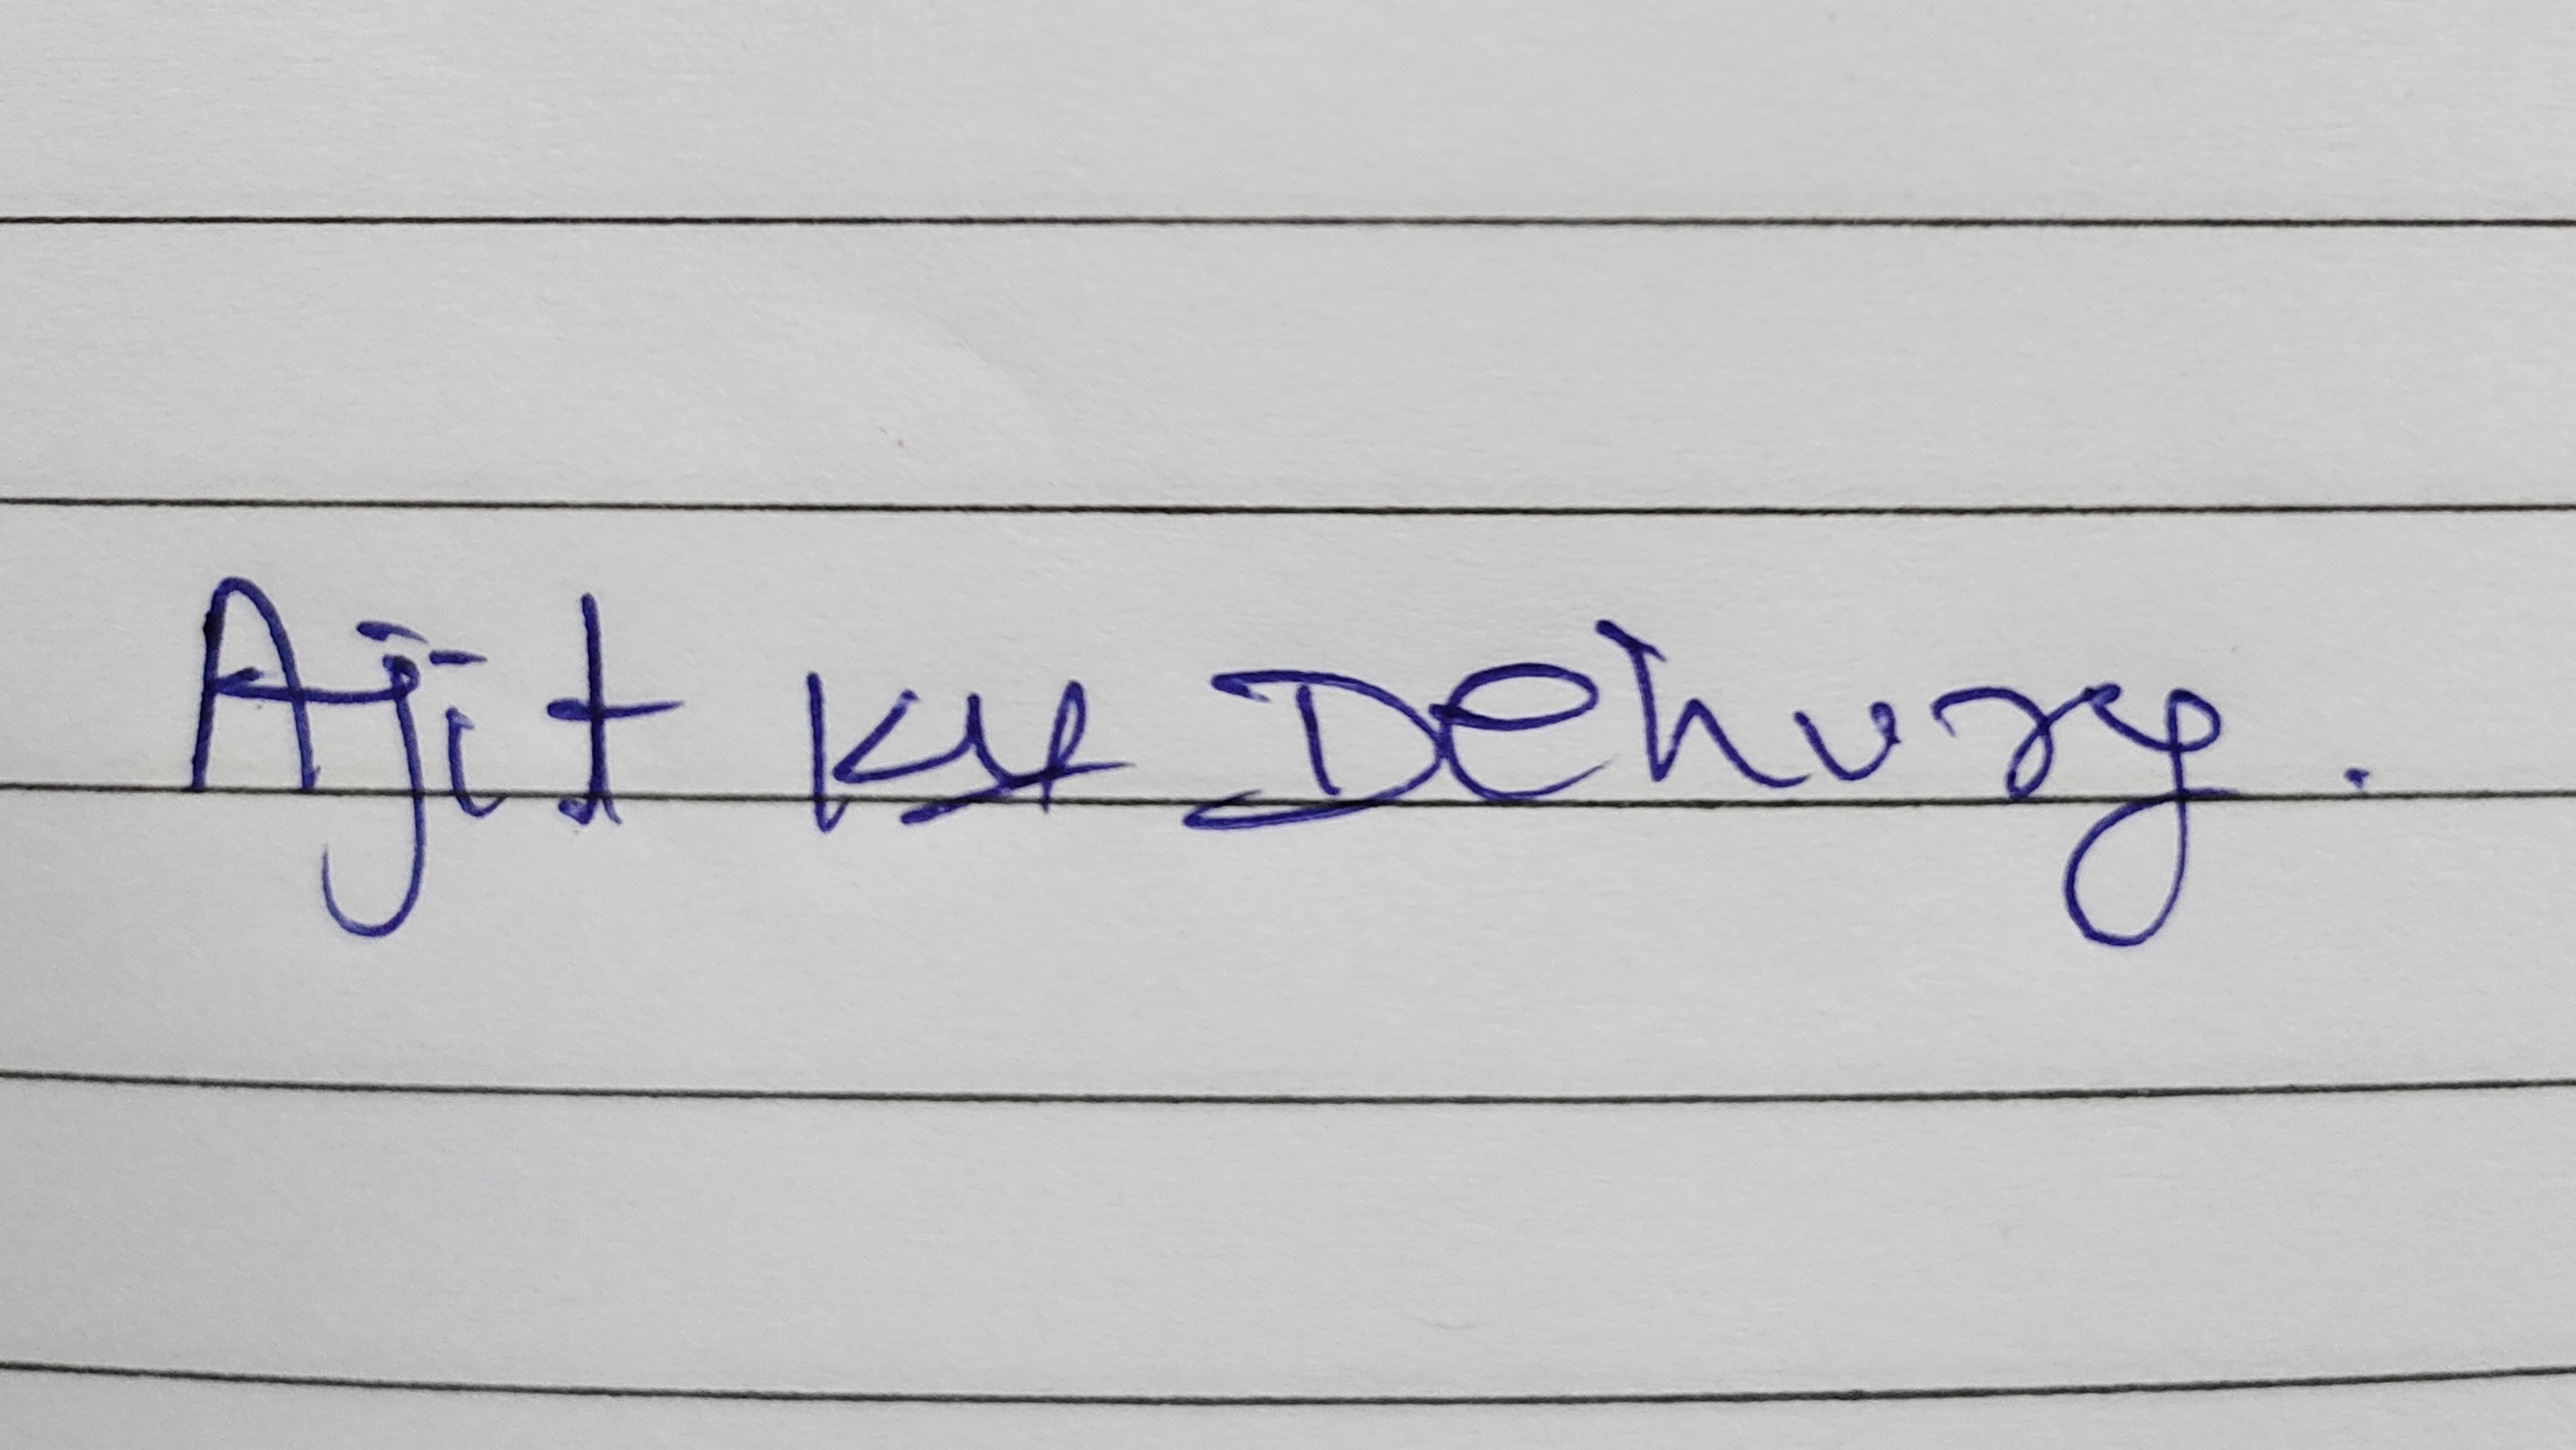 Ajit Ku Dehury.